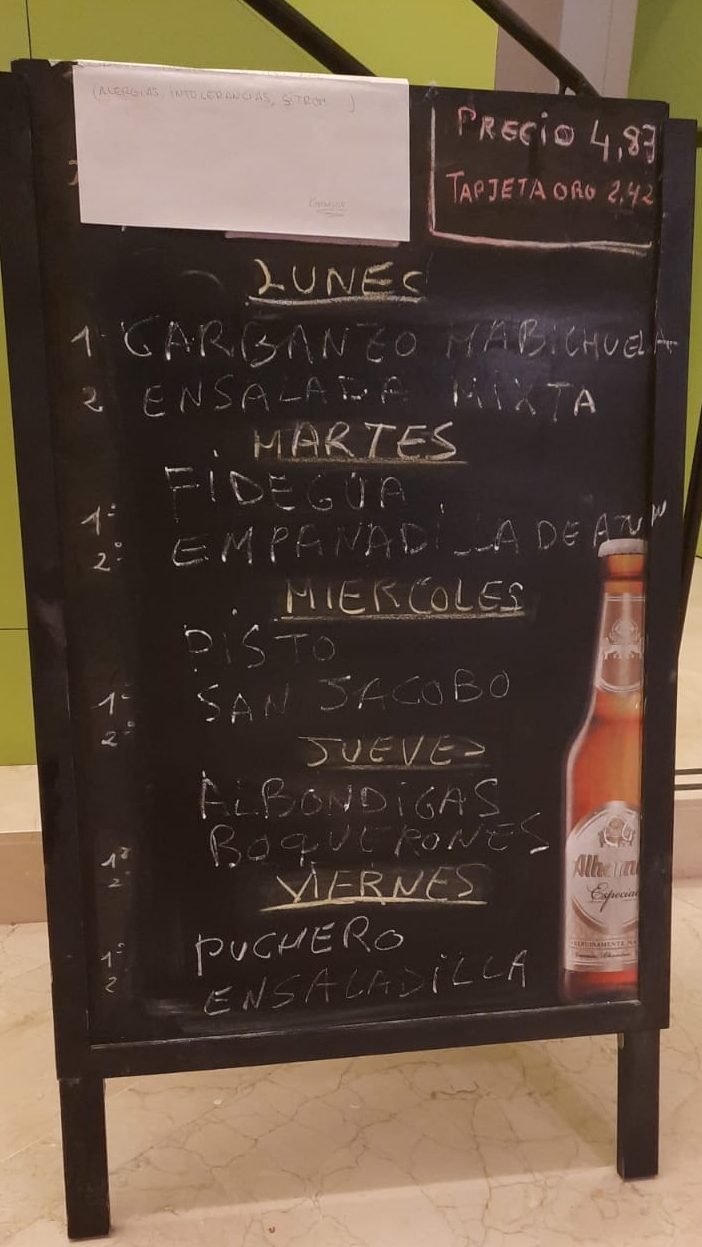 (ALERGIAS, INTOLERANCIAS, SITROM )
PRECIO 4,87
TARJETA ORO 2,42
LUNES
1 GARBANZO HABICHUELA
2 ENSALADA MIXTA
MARTES
1º FIDEGUA
2º EMPANADILLA DE ATUN
MIERCOLES
1º PISTO
2º SAN JACOBO
JUEVES
1º ALBONDIGAS
2º BOQUERONES
VIERNES
1º PUCHERO
2 ENSALADILLA
Alham
Especial